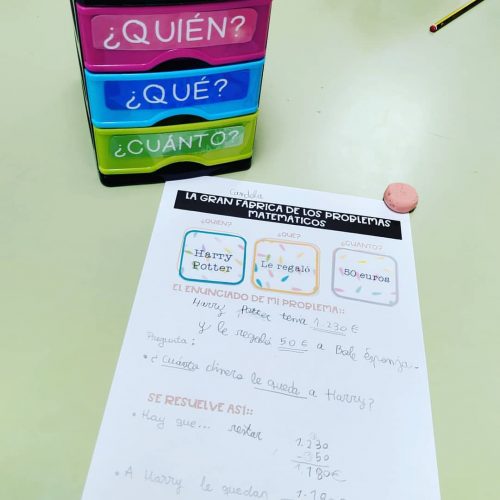 ¿QUIÉN?
¿QUÉ?
¿CUÁNTO?
Candela
LA GRAN FÁBRICA DE LOS PROBLEMAS
MATEMÁTICOS
¿QUIÉN?
¿QUÉ?
¿CUÁNTO?
Harry
Potter
Le regaló
50 euros
EL ENUNCIADO DE MI PROBLEMA::
Harry Potter tenía 1.230 €
y le regaló 50 € a Bob Esponja.
Pregunta:
• ¿Cuánto dinero le queda a Harry?
SE RESUELVE ASÍ::
• Hay que... restar
1.230
- 50
1.180€
• A Harry le quedan